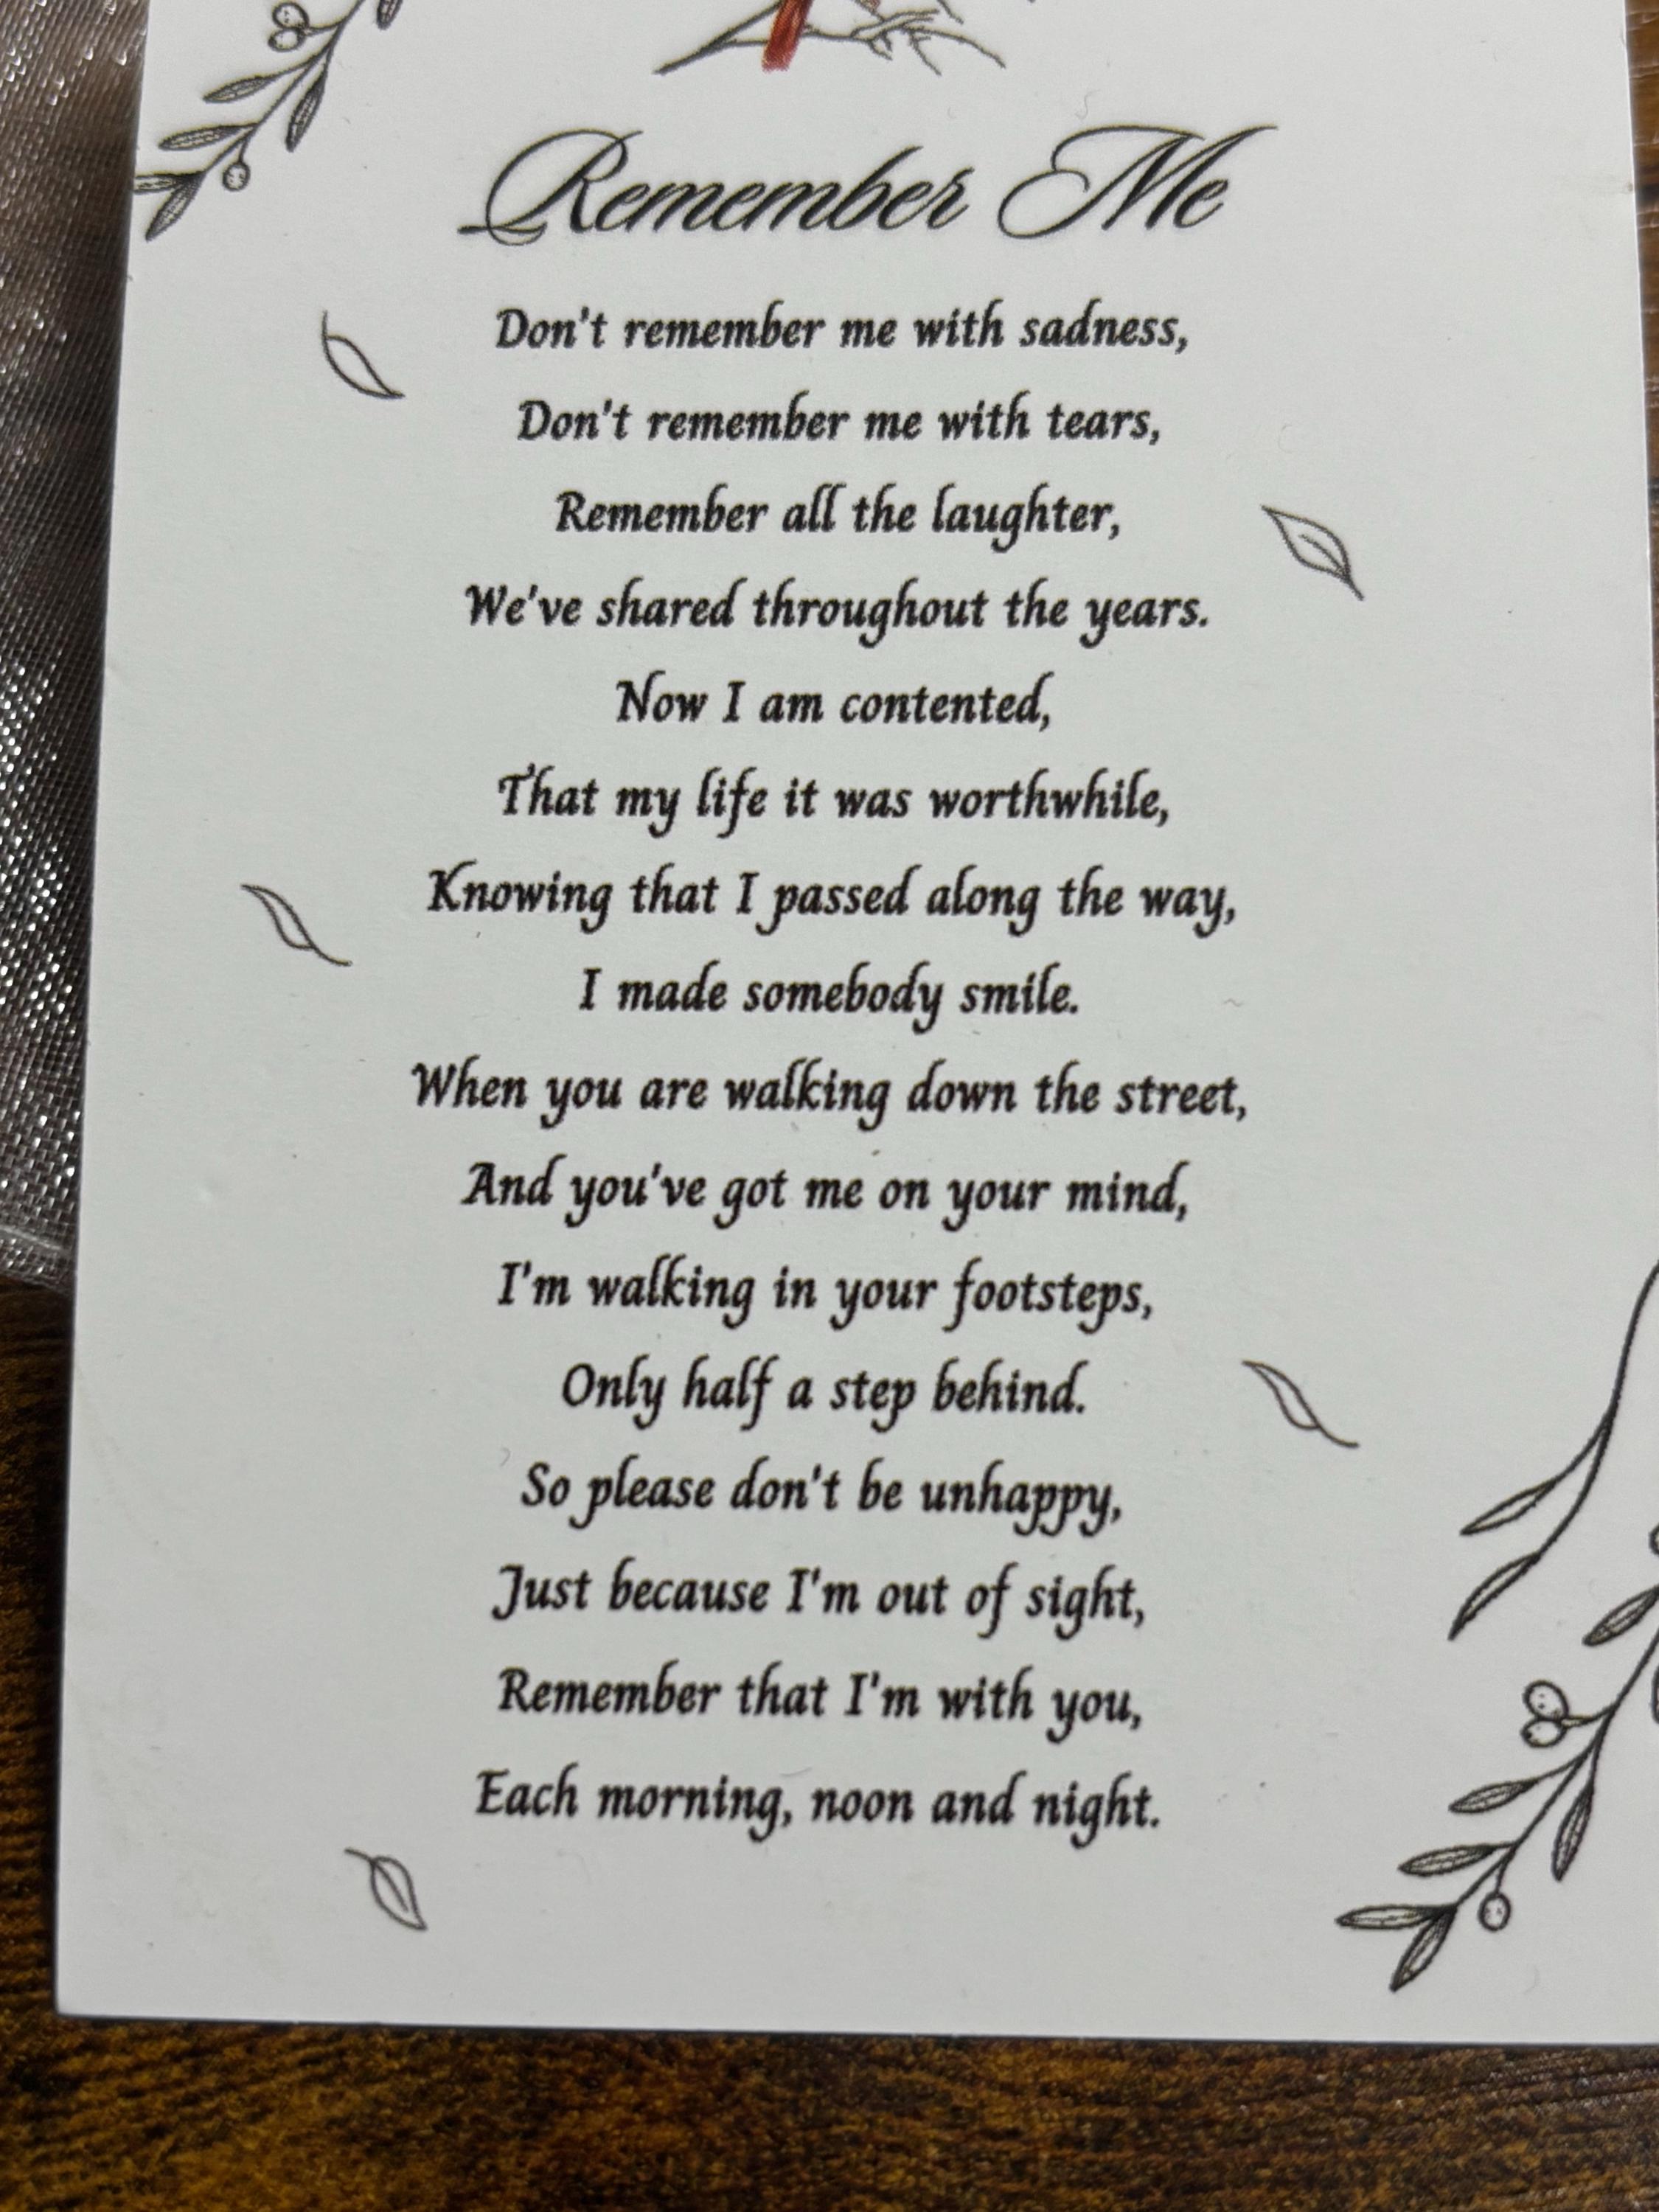 Remember Me
Don't remember me with sadness,
Don't remember me with tears,
Remember all the laughter,
We've shared throughout the years.
Now I am contented,
That my life it was worthwhile,
Knowing that I passed along the way,
I made somebody smile.
When you are walking down the street,
And you've got me on your mind,
I'm walking in your footsteps,
Only half a step behind.
So please don't be unhappy,
Just because I'm out of sight,
Remember that I'm with you,
Each morning, noon and night.